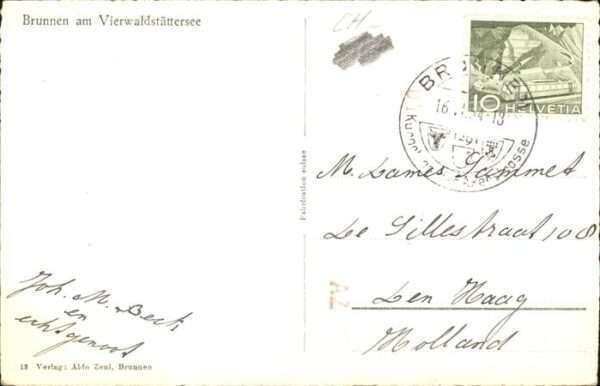 Brunnen am Vierwaldstättersee
CH
10 HELVETIA
BRUNNEN
16.
54-18
Fabrikation suisse
M. Dames Sammet
De Gillestraat 108
Den Haag
Holland
AZ
Joh. M. Beck
en
echtgenoot
12 Verlag: Aldo Zeni, Brunnen